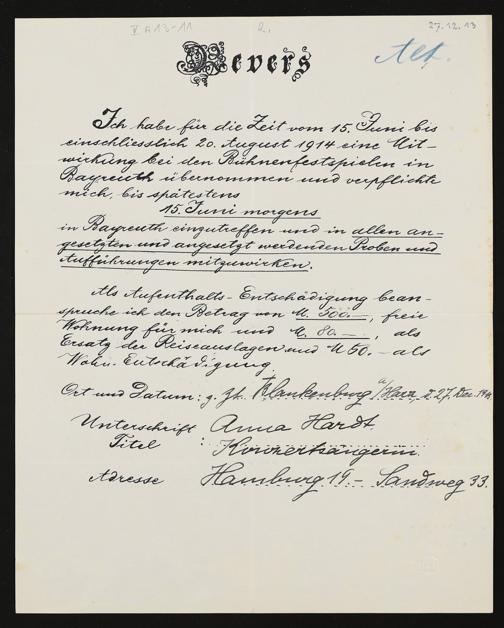 V A 13-11
2.
27.12.13
Revers
Alt.
Ich habe für die Zeit vom 15. Juni bis
einschliesslich 20. August 1914 eine Mit-
wirkung bei den Bühnenfestspielen in
Bayreuth übernommen und verpflichte
mich, bis spätestens
15. Juni morgens
in Bayreuth einzutreffen und in allen an-
gesetzten und angesetzt werdenden Proben und
Aufführungen mitzuwirken.
Als Aufenthalts-Entschädigung bean-
spruche ich den Betrag von M. 500.—, freie
Wohnung für mich und M. 80.—, als
Ersatz der Reiseauslagen und M 50.- als
Wohn. Entschädigung
Ort und Datum: z. Zt. Blankenburg a/Harz, d. 27. Dez.
Unterschrift Anna Hardt
Titel : Konzertsängerin
Adresse Hamburg 19.- Sandweg 33.